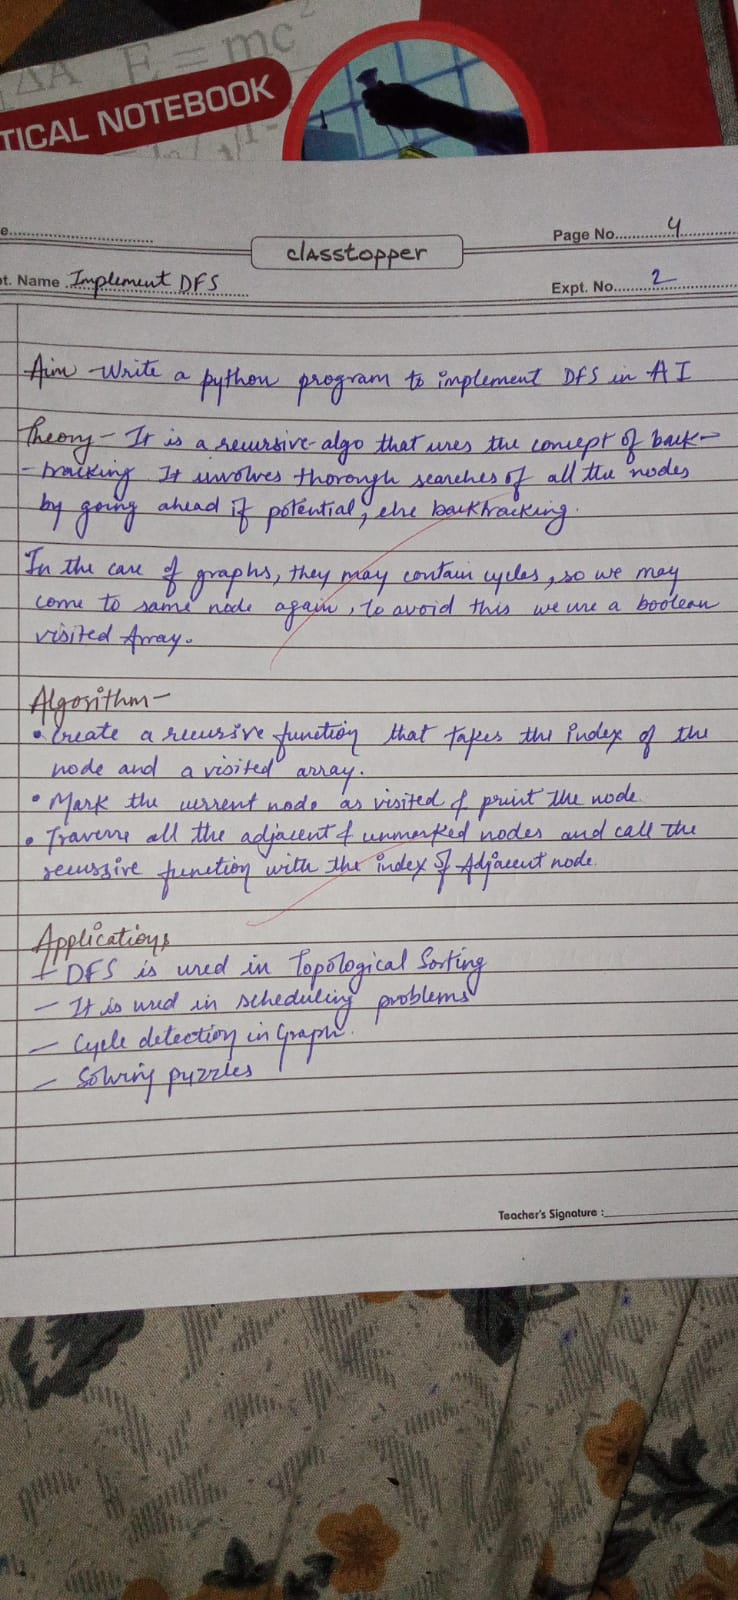 ΔA E = mc²
TICAL NOTEBOOK
e
Page No. 4
classtopper
pt. Name Implement DFS
Expt. No. 2
Aim - Write a python program to implement DFS in AI
Theory - It is a recursive algo that uses the concept of back-
- tracking. It involves thorough searches of all the nodes
by going ahead if potential, else backtracking.
In the case of graphs, they may contain cycles, so we may
come to same node again, to avoid this we use a boolean
visited Array.
Algorithm -
• Create a recursive function that takes the index of the
node and a visited array.
• Mark the current node as visited & print the node.
• Traverse all the adjacent & unmarked nodes and call the
recussive function with the index of Adjacent node.
Applications
- DFS is used in Topological Sorting
- It is used in scheduling problems
- Cycle detection in Graph.
- Solving puzzles
Teacher's Signature :